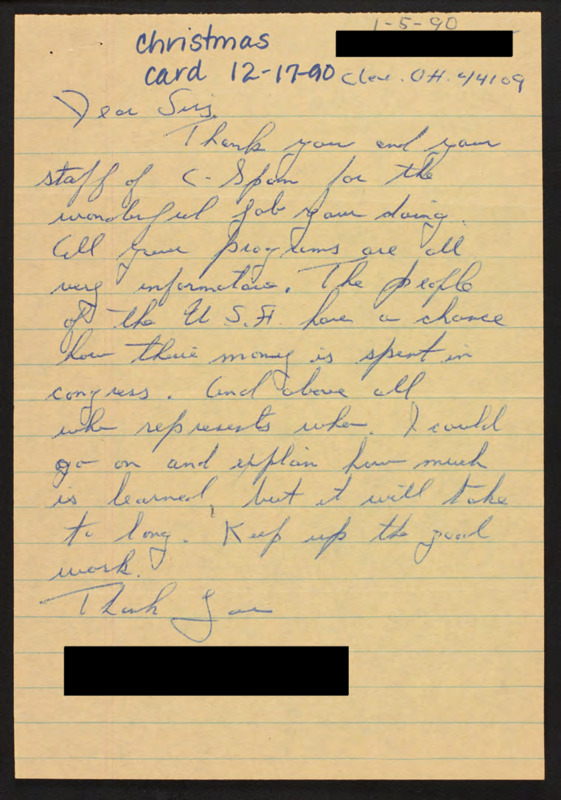 1-5-90
christmas
card 12-17-90 Cleve. OH. 44109
Dear Sirs,
Thank you and your
staff of C-Span for the
wonderful job your doing.
All your programs are all
very informative. The people
of the U.S.A. have a chance
how their money is spent in
congress. And above all
who represents who. I could
go on and explain how much
is learned, but it will take
to long. Keep up the good
work.
Thank You